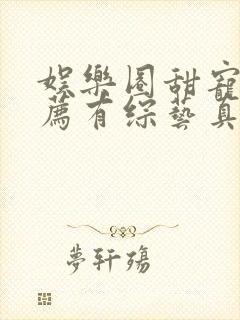 娛樂圈甜寵
薦有綜藝真
夢軒殤